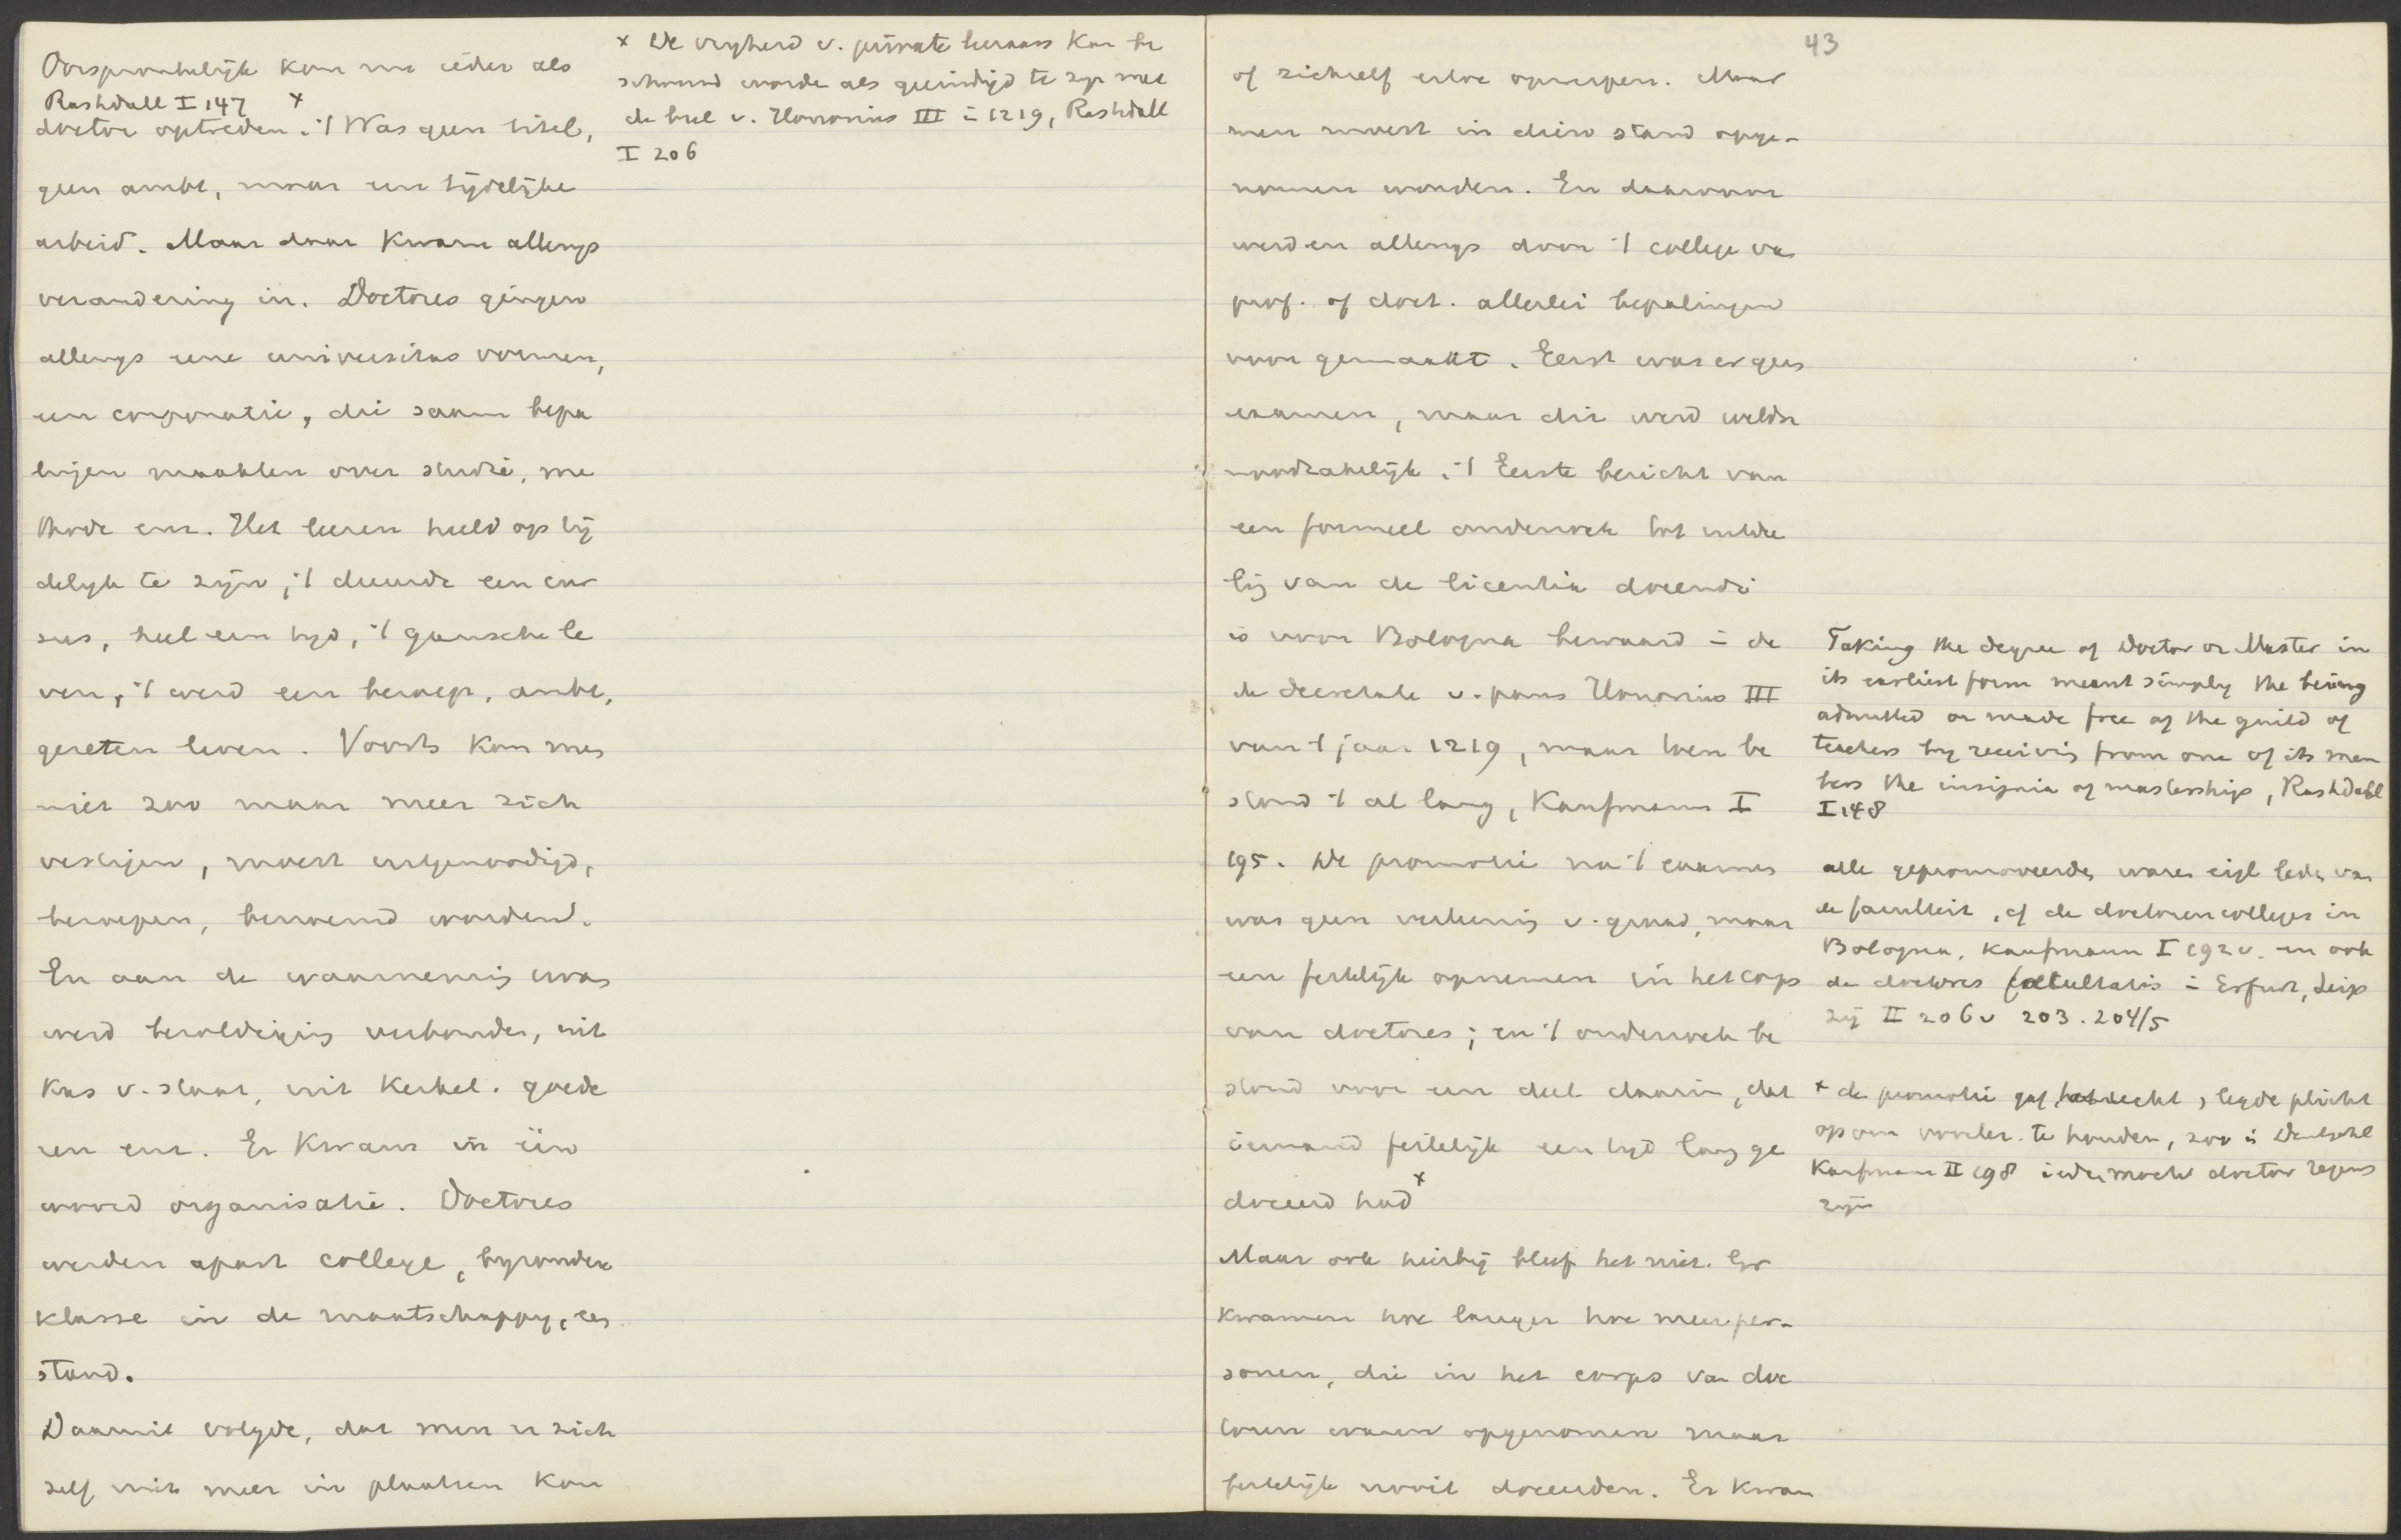 Oorspronkelijk kon nu ieder als
Rashdall I 147 x
doctor optreden; 't Was geen titel,
geen ambt, maar een tijdelijke
arbeid. Maar daar kwam allengs
verandering in. Doctores gingen
allengs eene universitas vormen,
een corporatie, die saam bepa
lingen maakten over studie, me
thode enz. Het leeren hield op tij
delijk te zijn, 't duurde een cur
sus, heel een tijd, 't gansche le
ven, 't werd een beroep, ambt,
gezeten leven. Voorts kon men
niet zoo maar meer zich
vestigen, moest uitgenoodigd,
beroepen, benoemd worden.
En aan de waarneming ervan
werd bezoldiging verbonden, uit
kas v. staat, uit kerkel. goede
ren enz. Er kwam in één
woord organisatie. Doctores
werden apart college, byzondere
klasse in de maatschappy, een
stand.
Daaruit volgde, dat men er zich
zelf niet meer in plaatsen kon
x De vryheid v. private leeraars kan be
schouwd worde als geeindigd te zyn met
de bul v. Honorius III in 1219, Rashdall
I 206
43
of zichzelf ertoe opwerpen. Maar
men moest in dien stand opge-
nomen worden. En daarvoor
werden allengs door 't college van
prof. of doct. allerlei bepalingen
voor gemaakt. Eerst was er geen
examen, maar die werd weldra
noodzakelijk. 't Eerste bericht van
een formeel onderzoek tot
van de licentia docendi
is voor Bologna bewaard in de
de decretale v. paus Honorius III
van 't jaar 1219, maar toen be
stond 't al lang, Kaufmann I
195. De promotie na 't examen
was geen verleening v. graad, maar
een feestelijk opnemen in het corps
van doctores; en 't onderzoek be
stond voor een deel daarin, dat
iemand feitelijk een tyd lang ge
doceerd had x
Maar ook hierbij bleef het niet. Er
kwamen hoe langer hoe meer per-
sonen, die in het corps van doc
toren waren opgenomen maar
feitelijk nooit doceerden. Er kwam
Taking the degree of Doctor or Master in
its earliest form meant simply the being
admitted or made free of the guild of
teachers by receiving from one of its mem
bers the insignia of mastership, Rashdall
I 148
alle gepromoveerde, waren eigl leden van
de faculteit, of de doctorencolleges in
Bologna, Kaufmann I 192 v. en ook
de doctores facultatis in Erfurt, Leip
zig II 206 v 203. 204/5
x de promotie gaf het recht, legde plicht
op om voorles. te houden, zoo in Duitschl
Kaufmann II 198 ieder mocht doctor regens
zijn